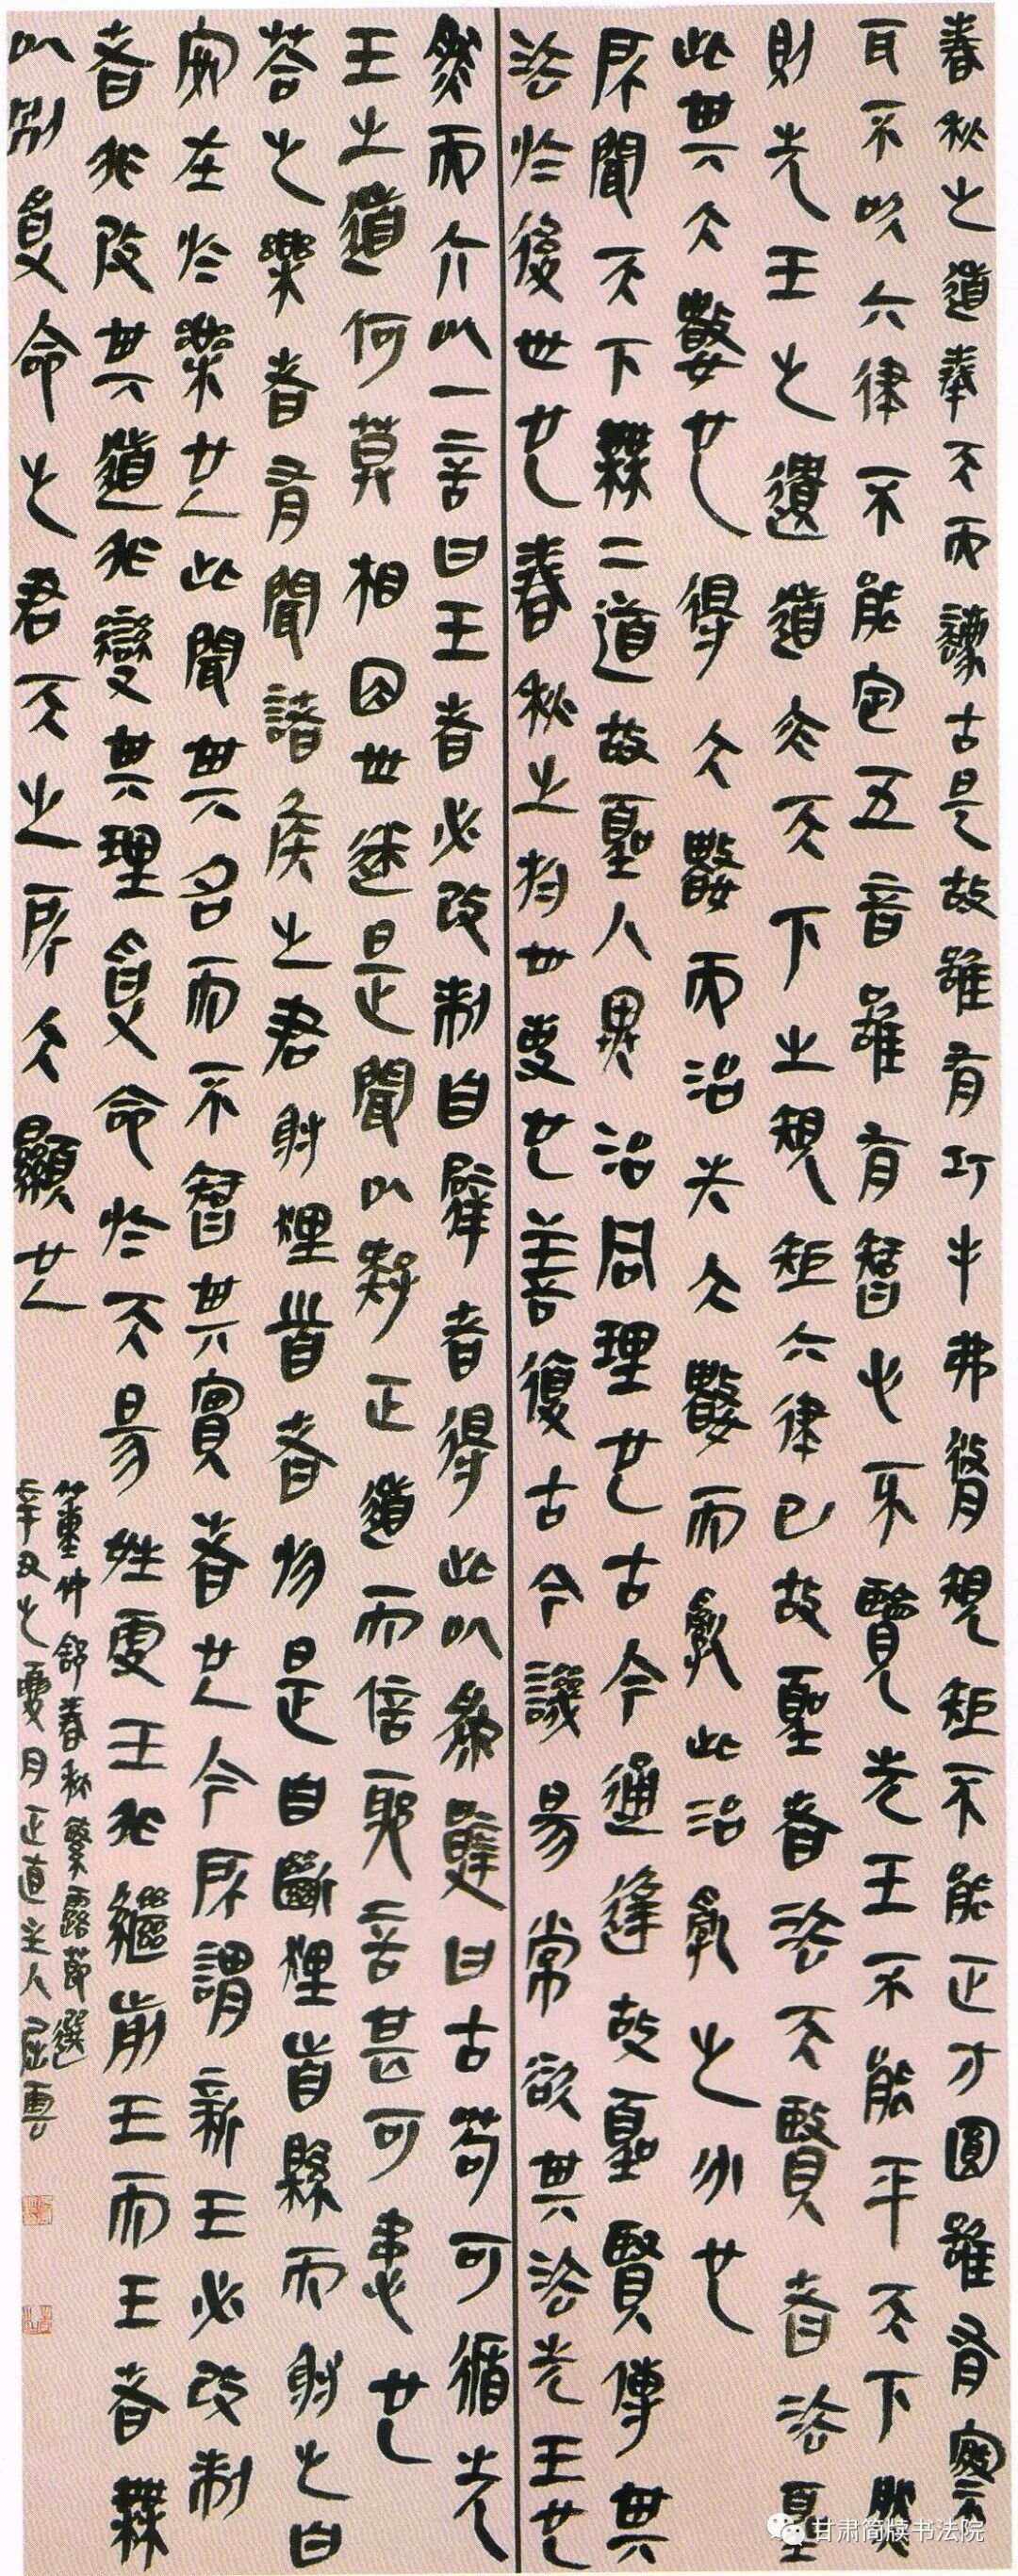 春秋之道奉天而灋古是故雖有巧手弗脩規矩不能正方圓雖有察
耳不吹六律不能定五音雖有智心不覽先王不能平天下然
則先王之遺道亦天下之規矩六律已故聖者法天賢者法聖
此其大數也得大數而治失大數而亂此治亂之分也
所聞天下無二道故聖人異治同理也古今通達故聖賢傳其
法於後世也春秋之於世事也善復古今譏易常欲其法先王也
然而介以一言曰王者必改制自僻者得此以為辭曰古苟可循先
王之道何莫相因世迷是聞以疑正道而信邪言甚可患也
荅之樂者有聞諸侯之君射狸首者於是自斷狸首縣而射之曰
安在於樂也此聞其名而不智其實者也今所謂新王必改制
者非改其道非變其理受命於天易姓更王非繼前王而王者無
以別受命之君天之所大顯也
董仲舒春秋繁露節選
辛丑之夏月正道主人
甘肃简牍书法院